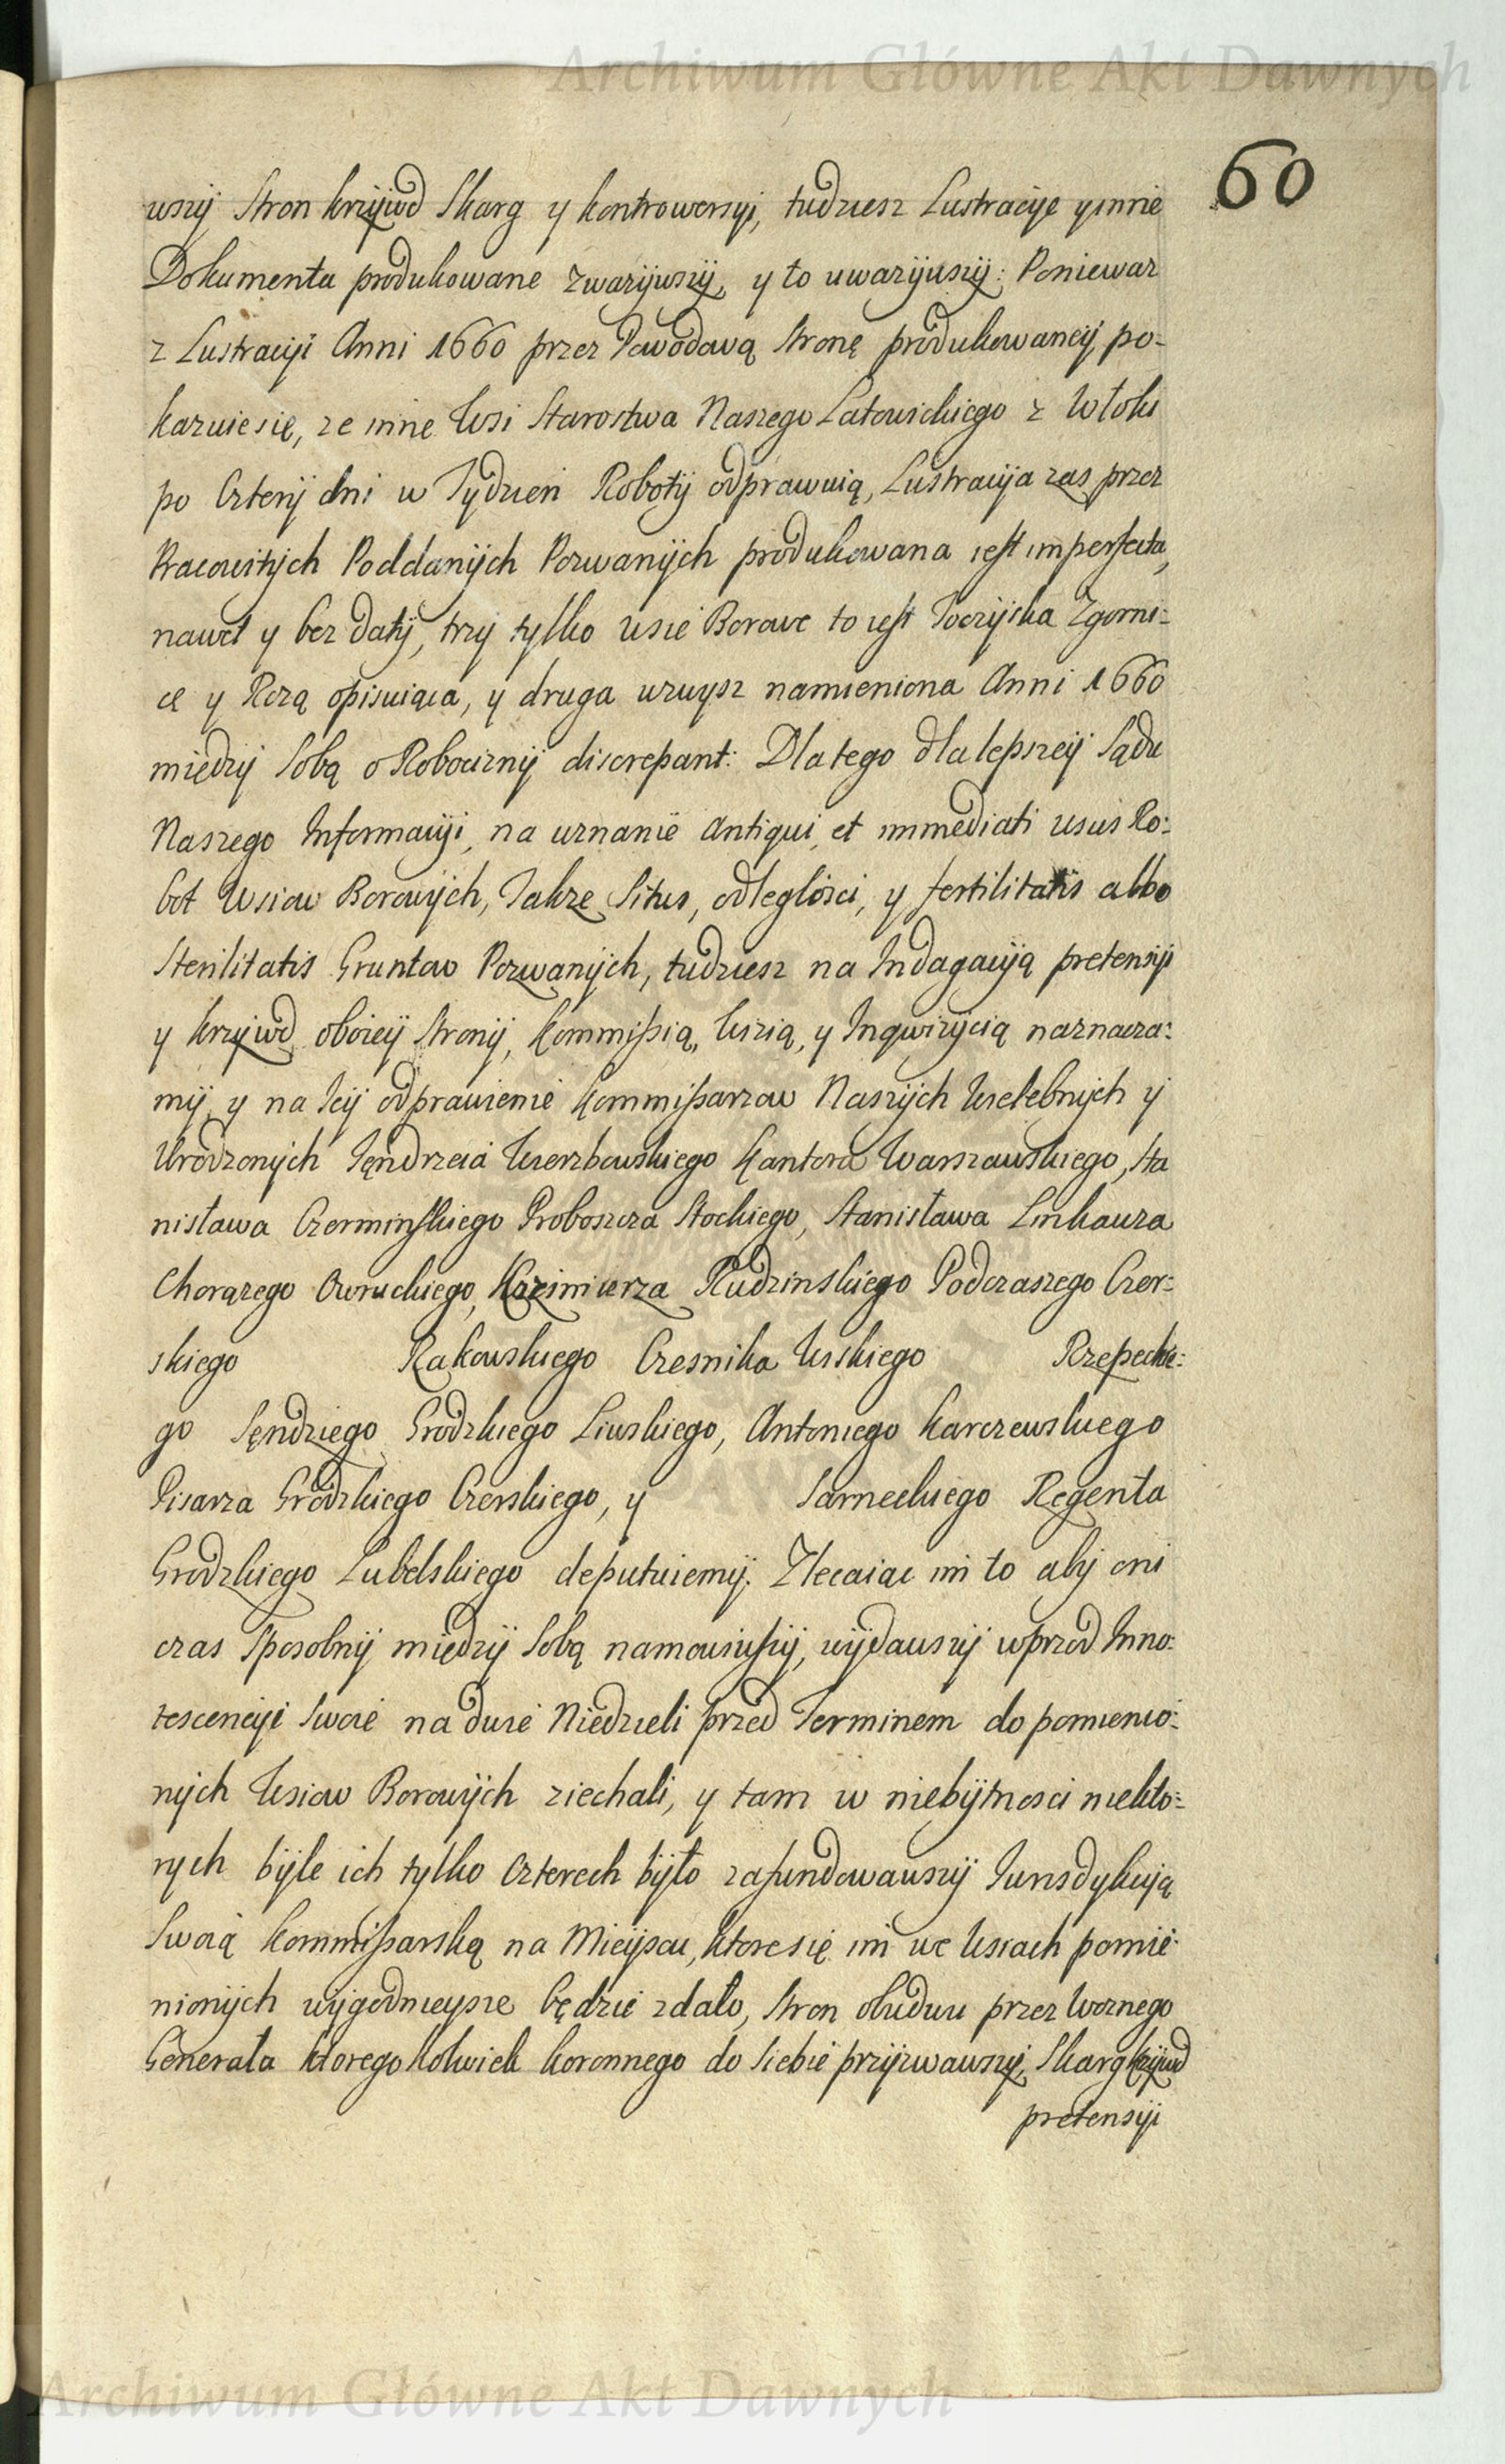 Archiwum Główne Akt Dawnych
60
wszÿ Stron krzÿwd Skarg y kontrowersyi, tudziesz Lustracÿe y inne
Dokumenta produkowane zwazÿwszÿ, y to uwazÿwszÿ: Poniewaz
z Lustracÿi Anni 1660 przez Powodową Stronę produkowaneÿ, po-
kazuie się, ze inne Wsi Starostwa Naszego Latowickiego z Włoki
po Czterÿ dni w Tydzień Robotÿ odprawuią, Lustracÿa zas przez
Pracowitÿch Poddanÿch Pozwanÿch produkowana iest imperfecta,
nawet y bez datÿ, trzy tylko wsie Borowe to iest Toczÿska Zgorni-
ce y Rozą opisuiąca, y druga wzwysz namieniona Anni 1660
międzÿ sobą o Robociznÿ discrepant: Dla tego dla lepszeÿ Sądu
Naszego Informacÿi, na uznanie antiqui, et immediati usus Ro-
bot Wsiow Borowÿch, Takze Situs, odległości, y fertilitatis albo
Sterilitatis Gruntow Pozwanÿch, tudziesz na Indagacÿą pretensÿi
y krzÿwd oboieÿ Stronÿ, Kommissią, Wizią, y Inqwizÿcią naznacza-
mÿ, y na Ieÿ odprawienie Kommissarzow Naszÿch Wielebnÿch ÿ
Urodzonÿch Jędrzeia Wierzbowskiego Kantora Warszawskiego, Sta
nisława Czerminskiego Proboszcza Stockiego, Stanisława Linkauza
Chorązego Owruckiego, Kazimierza Rudzinskiego Podczaszego Czer-
skiego Rakowskiego Czesnika Wiskiego Rzepeckie-
go Sędziego Grodzkiego Liwskiego, Antoniego Karczewskiego
Pisarza Grodzkiego Czerskiego, y Sarneckiego Regenta
Grodzkiego Lubelskiego deputuiemÿ. Zlecaiac im to abÿ oni
czas sposobnÿ międzÿ sobą namowiwszÿ, wÿdawszÿ wprzod Inno-
tescencÿi swoie na dwie Niedzieli przed Terminem do pomienio-
nÿch Wsiow Borowÿch ziechali, y tam w niebÿtnosci niekto-
rych bÿle ich tylko czterech bÿło zafundowawszÿ Jurisdykcÿą
Swoią Kommissarską na Mieÿscu, ktore się im we Wsiach pomie-
nionÿch wÿgodnieysze będzie zdało, Stron obudwu przez Woznego
Generała ktoregokolwiek koronnego do siebie przÿzwawszÿ, Skarg krzÿwd
pretensÿi
Archiwum Główne Akt Dawnych